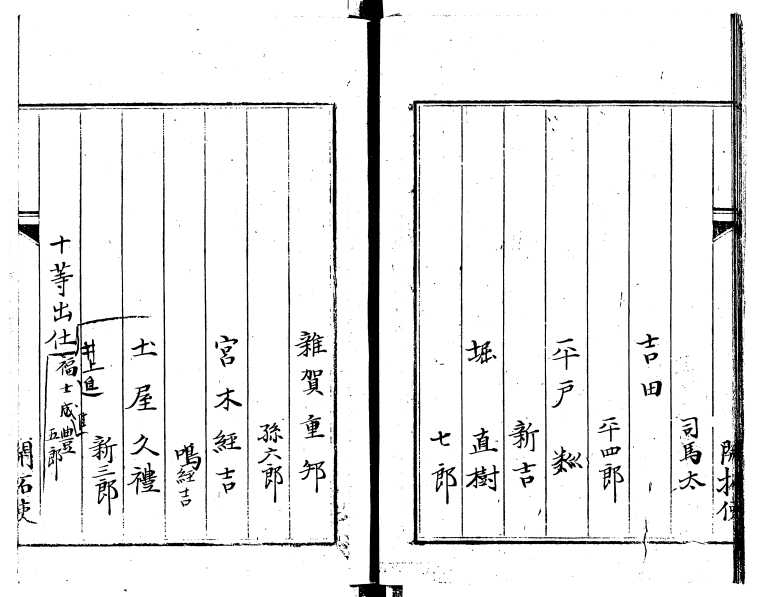 開拓使
司馬太
吉田
平四郎
平戸
新吉
堀 直樹
七郎
雑賀重邦
孫六郎
宮木経吉
鳴経吉
土屋久禮
新三郎
井上進
十等出仕
福士成豊
五郎
開拓使